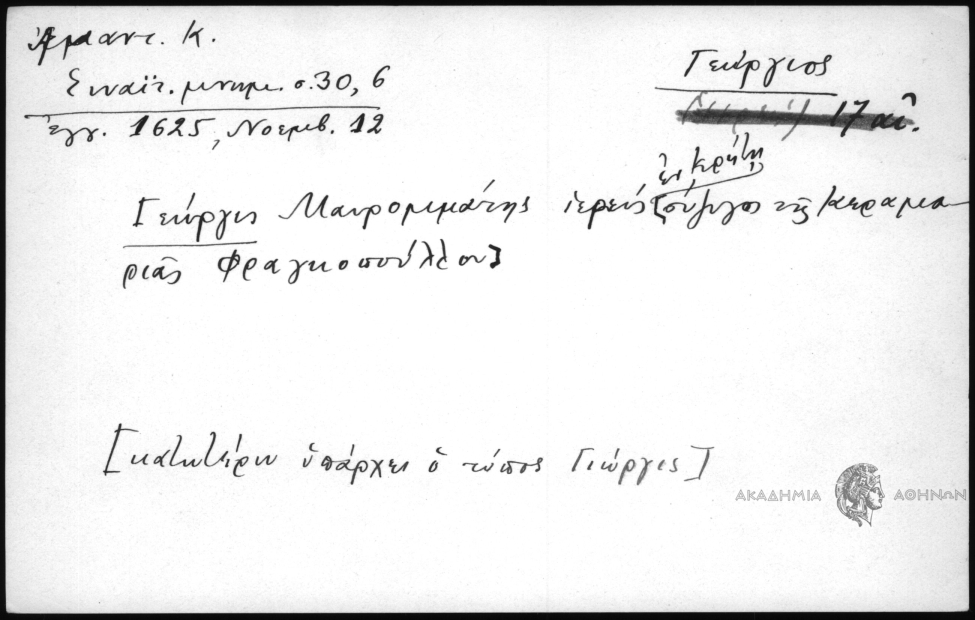 Ἀμαντ. Κ.
Σιναϊτ. μνημ. σ. 30, 6
ἔγγ. 1625, Νοεμβ. 12
Γεώργιος
17 αἰ.
ἐν Κρήτῃ
Γεώργις Μαυρομμάτης ἱερεύς [σύζυγος τῆς Κεραμα
ριᾶς Φραγκοπούλλου]
[κατωτέρω ὑπάρχει ὁ τύπος Γιώργις]
ΑΚΑΔΗΜΙΑ ΑΘΗΝΩΝ